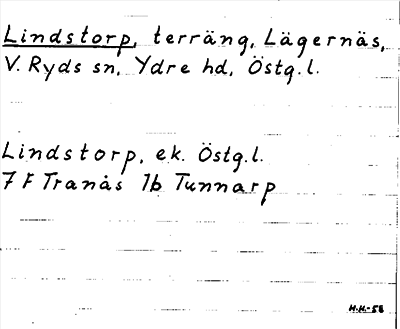 Lindstorp, terräng, Lägernäs,
V. Ryds sn, Ydre hd, Östg.l.
Lindstorp, ek. Östg.l.
7 F Tranås 1b Tunnarp
H.H.-58